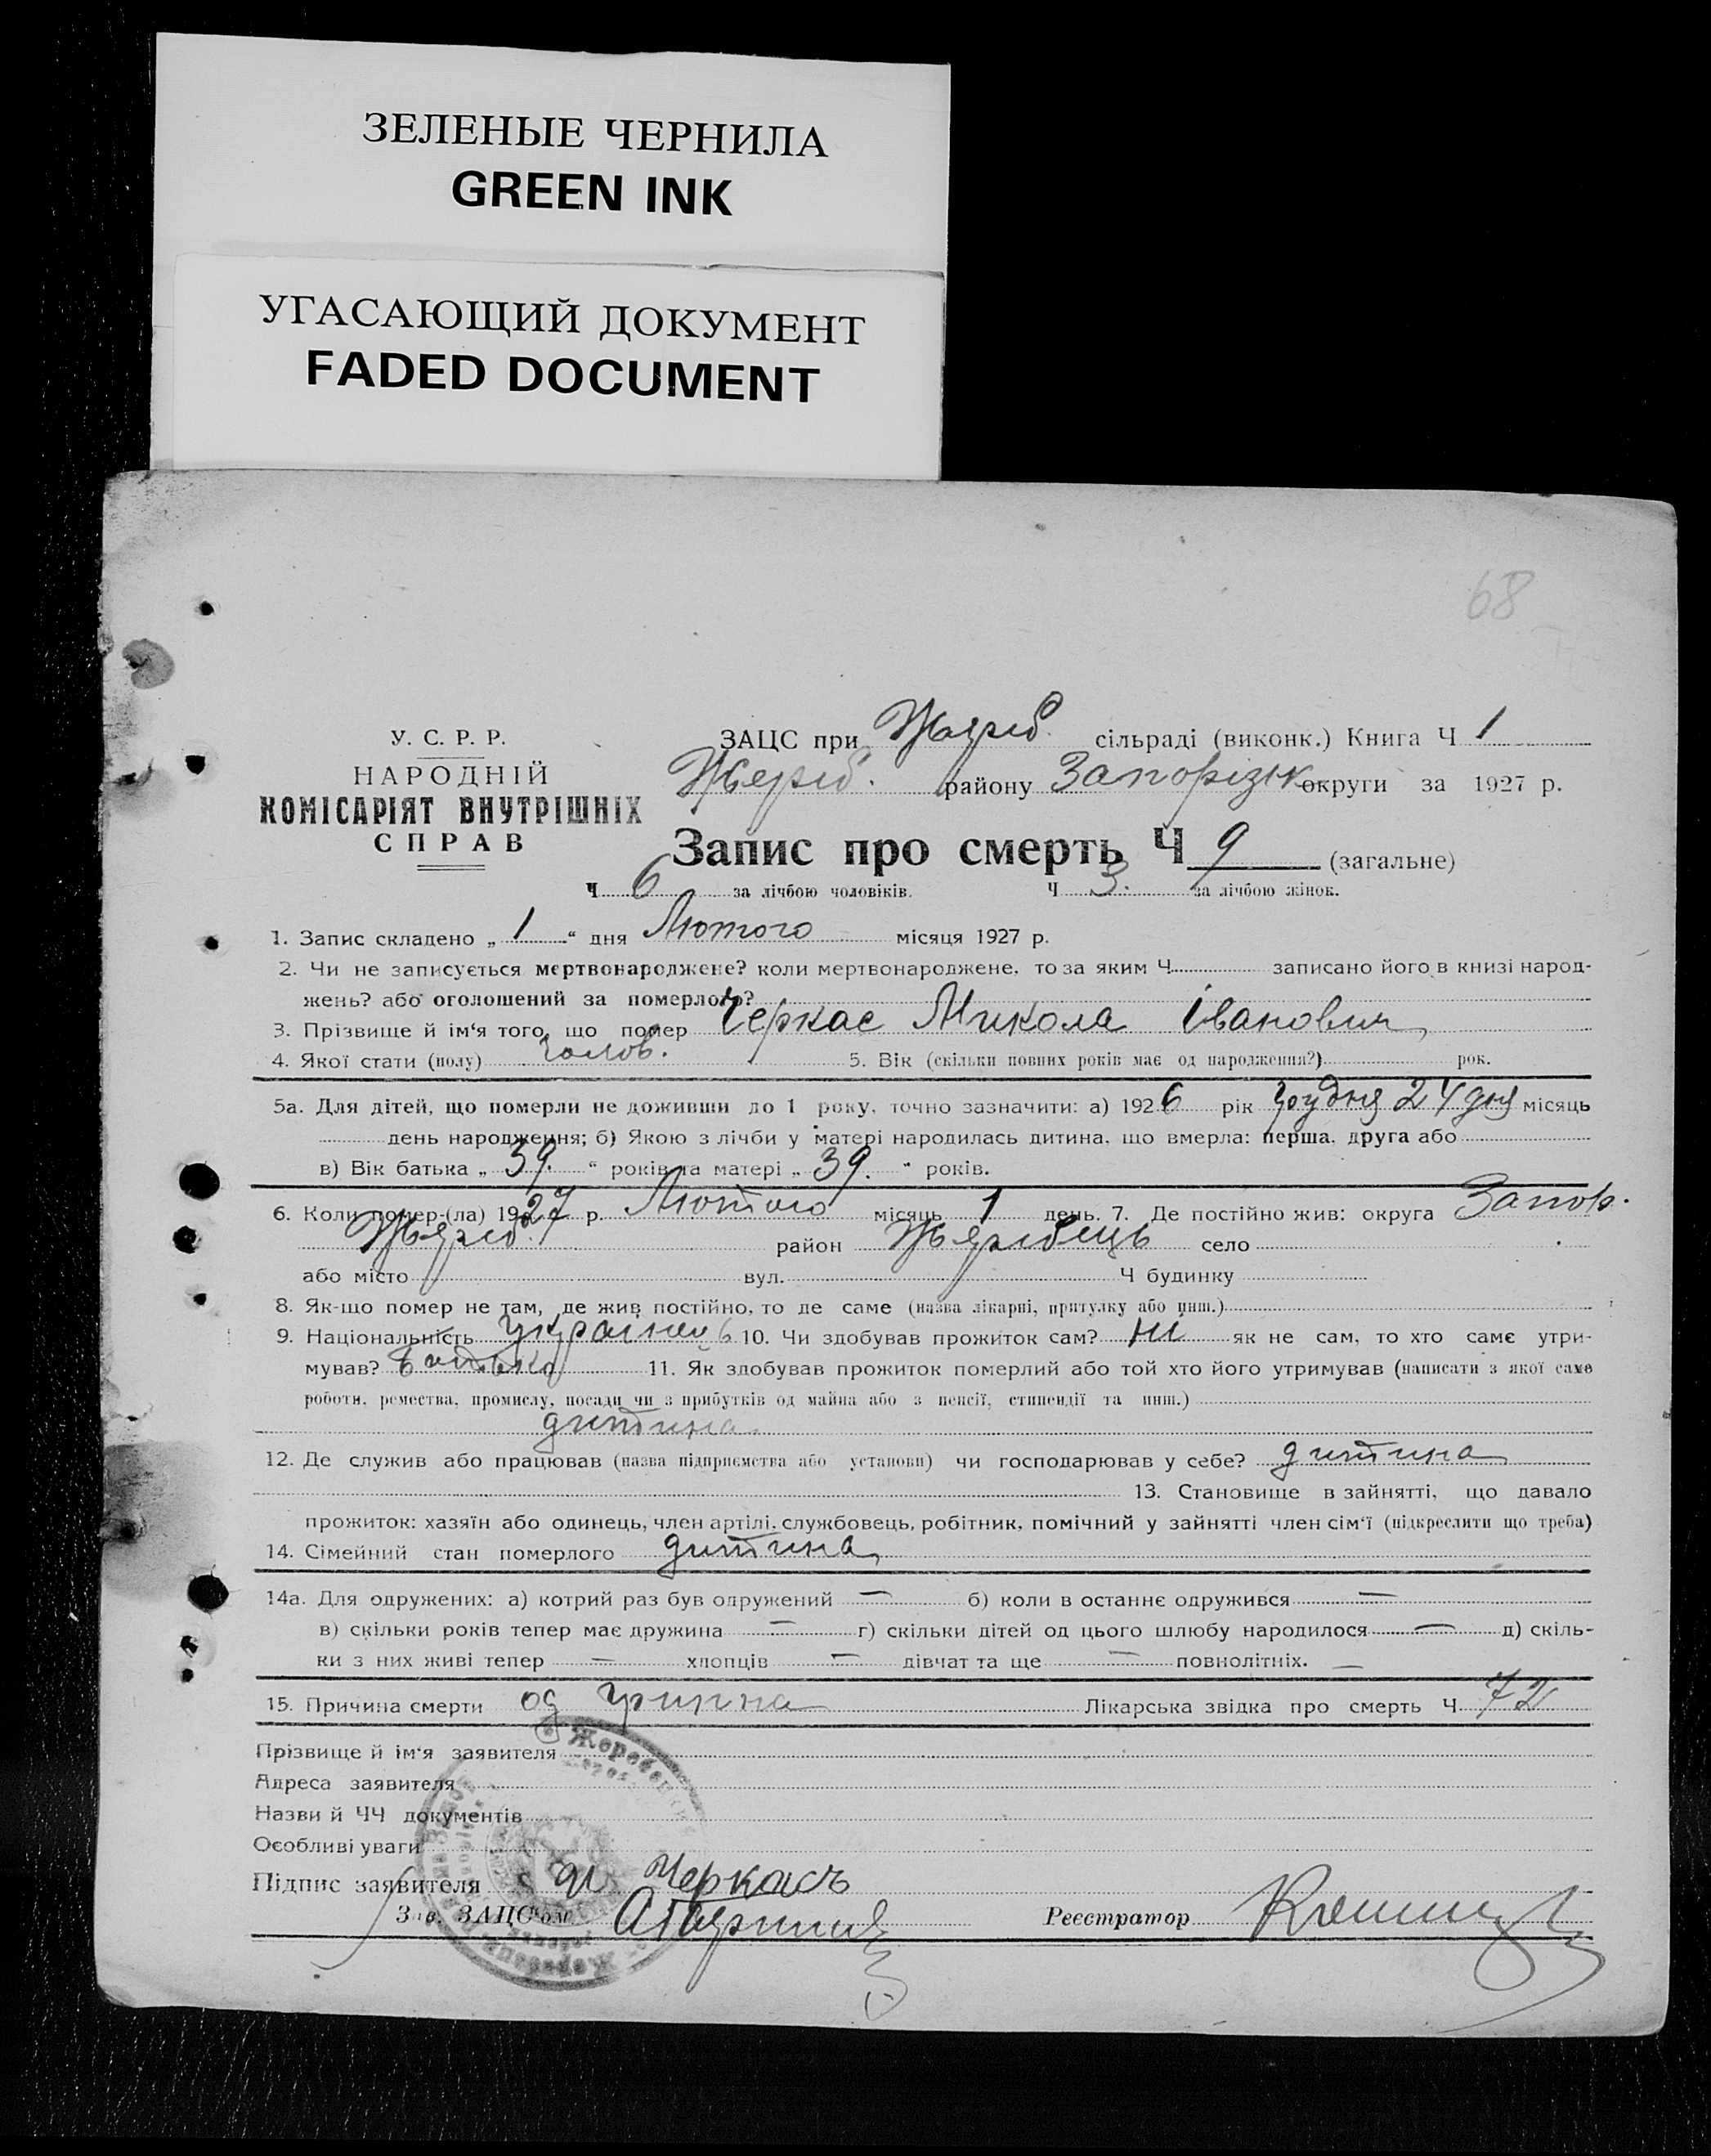 ЗЕЛЕНЫЕ ЧЕРНИЛА
GREEN INK
УГАСАЮЩИЙ ДОКУМЕНТ
FADED DOCUMENT
68
У. С. Р. Р.
НАРОДНІЙ
КОМІСАРІЯТ ВНУТРІШНІХ
СПРАВ
ЗАЦС при Жереб. сільраді (виконк.) Книга Ч 1
Жереб. району Запорізьк округи за 1927 р.
Запис про смерть Ч 9 (загальне)
Ч 6 за лічбою чоловіків. Ч 3. за лічбою жінок.
1. Запис складено „ 1 “ дня Лютого місяця 1927 р.
2. Чи не записується мертвонароджене? коли мертвонароджене, то за яким Ч записано його в книзі народ-
жень? або оголошений за померлого?
3. Прізвище й ім'я того, що помер Черкас Микола Іванович
4. Якої стати (полу) чолов. 5. Вік (скільки повних років має од народження?) рок.
5а. Для дітей, що померли не доживши до 1 року, точно зазначити: а) 1926 рік грудня 24 дня місяць
день народження; б) Якою з лічби у матері народилась дитина, що вмерла: перша, друга або
в) Вік батька „ 39. “ років та матері „ 39. “ років.
6. Коли помер-(ла) 1927 р. Лютого місяць 1 день. 7. Де постійно жив: округа Запор.
Жереб. район Жеребець село
або місто вул. Ч будинку
8. Як-що помер не там, де жив постійно, то де саме (назва лікарні, притулку або инш.)
9. Національність українець 10. Чи здобував прожиток сам? ні як не сам, то хто саме утри-
мував? батько 11. Як здобував прожиток померлий або той хто його утримував (написати з якої саме
роботи, ремества, промислу, посади чи з прибутків од майна або з пенсії, стипендії та инш.)
дитина
12. Де служив або працював (назва підприємства або установи) чи господарював у себе? дитина
13. Становище в зайнятті, що давало
прожиток: хазяїн або одинець, член артілі, службовець, робітник, помічний у зайнятті член сім'ї (підкреслити що треба)
14. Сімейний стан померлого дитина
14а. Для одружених: а) котрий раз був одружений — б) коли в останнє одружився —
в) скільки років тепер має дружина — г) скільки дітей од цього шлюбу народилося — д) скіль-
ки з них живі тепер — хлопців — дівчат та ще — повнолітніх. —
15. Причина смерти од гриппа Лікарська звідка про смерть Ч 72
Прізвище й ім'я заявителя
Адреса заявителя
Назви й ЧЧ документів
Особливі уваги
Підпис заявителя Черкась
Зав. ЗАЦС'ом Реєстратор